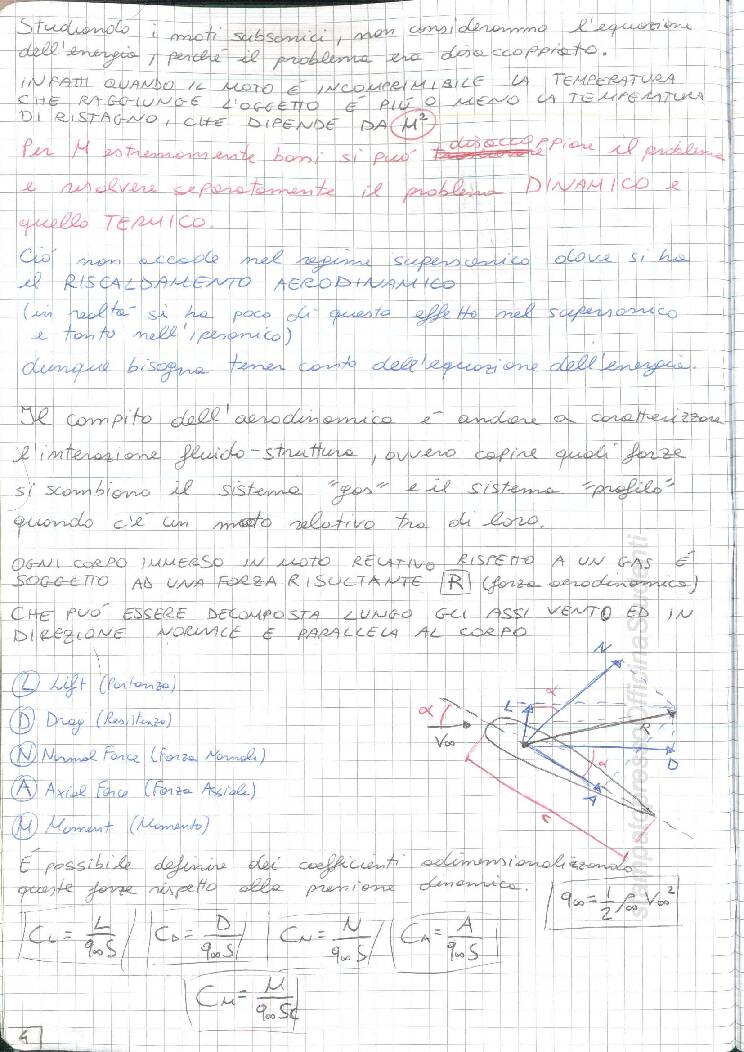 Studiando i moti subsonici, non considerammo l'equazione
dell'energia, perché il problema era disaccoppiato.
INFATTI QUANDO IL MOTO É INCOMPRIMIBILE LA TEMPERATURA
CHE RAGGIUNGE L'OGGETTO É PIÚ O MENO LA TEMPERATURA
DI RISTAGNO, CHE DIPENDE DA M²
Per M estremamente bassi si può disaccoppiare il problema
e risolvere separatamente il problema DINAMICO e
quello TERMICO.
Ció non accade nel regime supersonico dove si ha
il RISCALDAMENTO AERODINAMICO
(in realtá si ha poco di questo effetto nel supersonico
e tanto nell'ipersonico)
dunque bisogna tener conto dell'equazione dell'energia.
Il compito dell'aerodinamica é andare a caratterizzare
l'interazione fluido-struttura, ovvero capire quali forze
si scambiano il sistema "gas" e il sistema "profilo"
quando c'é un moto relativo tra di loro.
OGNI CORPO IMMERSO IN MOTO RELATIVO RISPETTO A UN GAS É
SOGGETTO AD UNA FORZA RISULTANTE R (forza aerodinamica)
CHE PUÓ ESSERE DECOMPOSTA LUNGO GLI ASSI VENTO ED IN
DIREZIONE NORMALE E PARALLELA AL CORPO
L Lift (Portanza)
D Drag (Resistenza)
N Normal Force (Forza Normale)
A Axial Force (Forza Assiale)
M Moment (Momento)
N
L
α
R
α
V∞
D
α
A
c
É possibile definire dei coefficienti adimensionalizzando
queste forze rispetto alla pressione dinamica.
q∞ = 1/2 ρ∞ V∞²
C_L = L/q∞S
C_D = D/q∞S
C_N = N/q∞S
C_A = A/q∞S
C_M = M/q∞Sc
4
stampato presso Officina Studenti